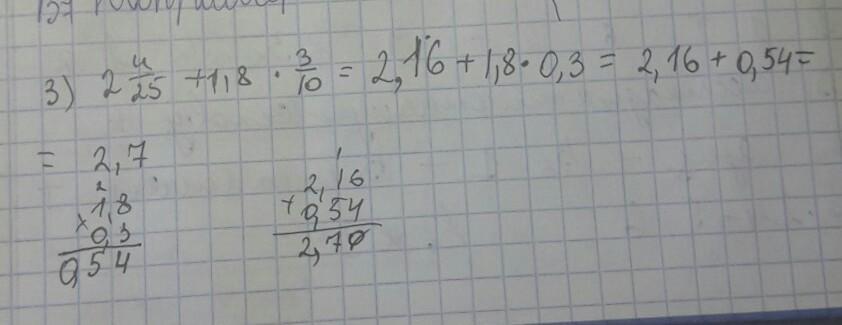 3) 2 4/25 + 1,8 · 3/10 = 2,16 + 1,8 · 0,3 = 2,16 + 0,54 =
= 2,7
2
× 1,8
0,3
0,54
1
2,16
+ 0,54
2,70